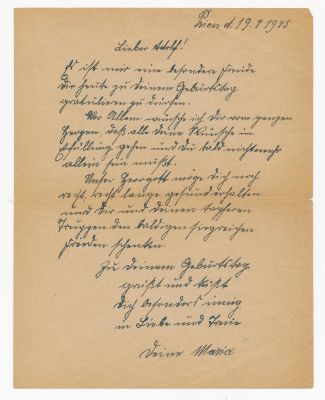 Wien d. 19.4 1945
Lieber Adolf!
Es ist mir eine besondere Freude
Dir heute zu Deinem Geburtstag
gratulieren zu dürfen.
Vor Allem wünsch ich Dir vom ganzen
Herzen, daß alle Deine Wünsche in
Erfüllung gehen und Du bald nicht mehr
allein sein müßt.
Unser Herrgott möge Dich noch
recht, recht lange gesund erhalten
und Dir und Deinen tapferen
Truppen den baldigen siegreichen
Frieden schenken.
Zu Deinem Geburtstag
grüßt und küßt
Dich besonders innig
in Liebe und Treue
Deine Maria